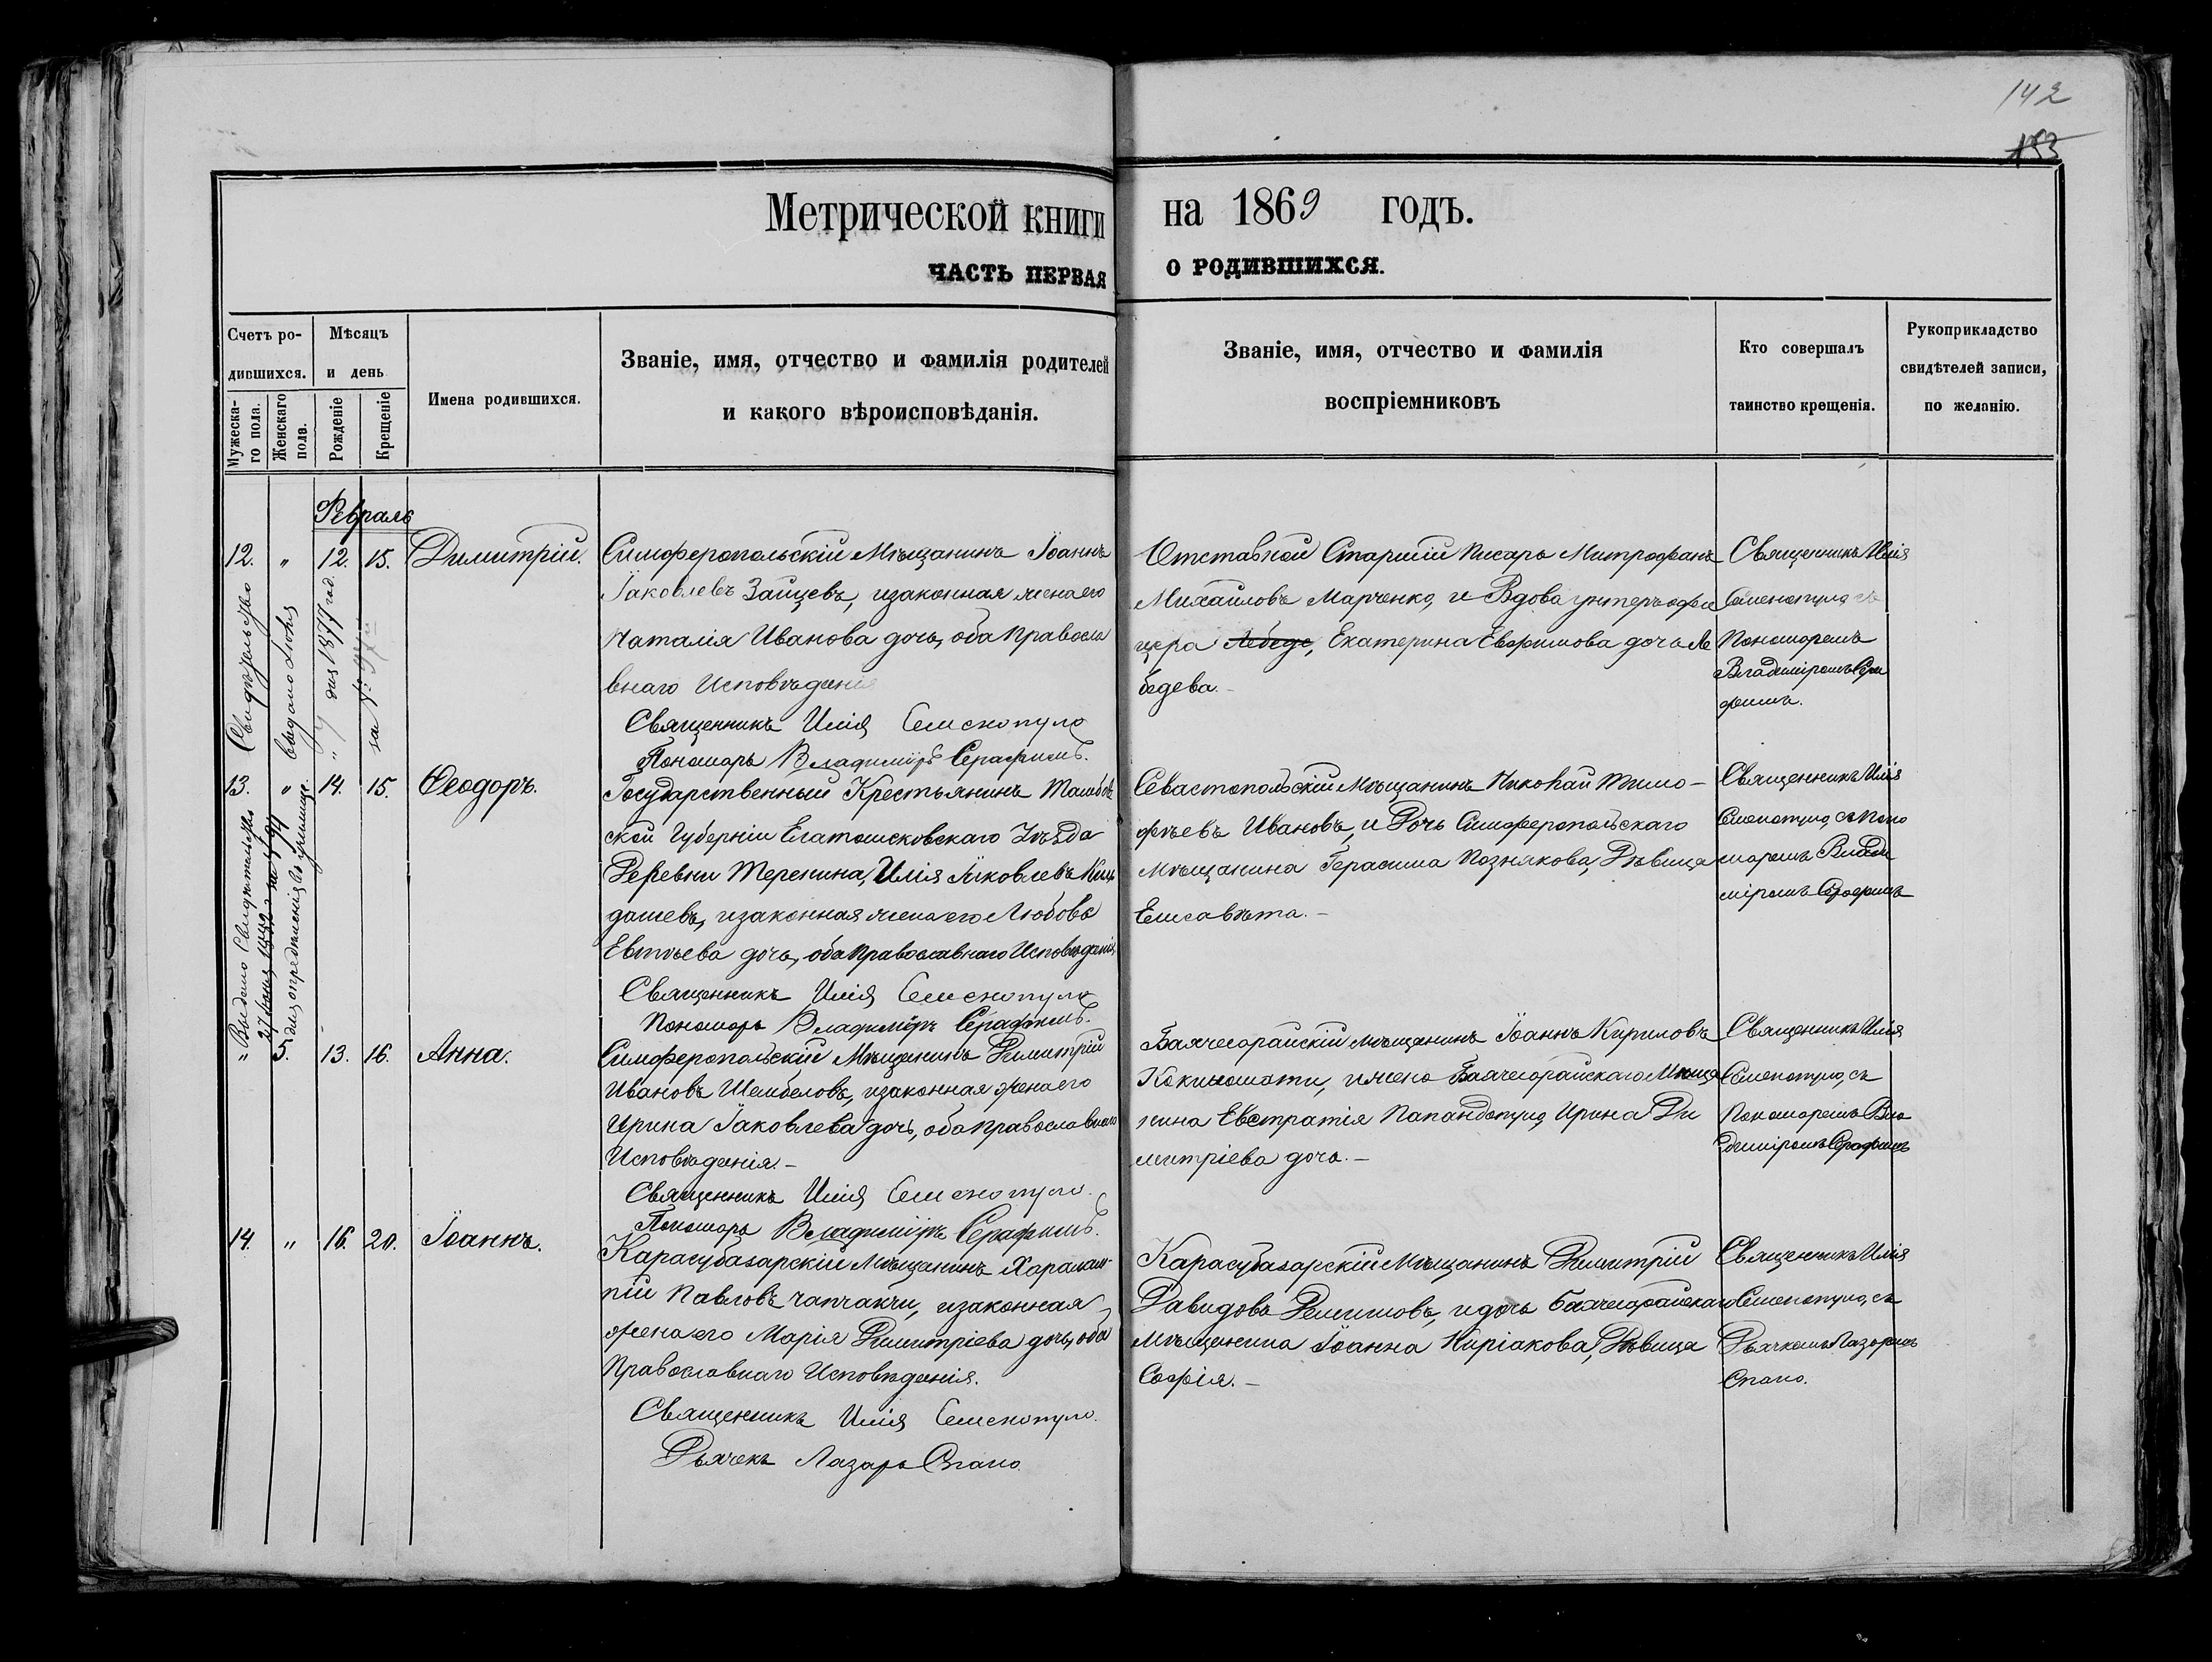 142
153
Метрической книги на 1869 годъ.
ЧАСТЬ ПЕРВАЯ О РОДИВШИХСЯ.
Счетъ ро-
дившихся.
Мужеска-
го пола.
Женскаго
пола.
Мѣсяцъ
и день
Рожденіе
Крещеніе
Имена родившихся.
Званіе, имя, отчество и фамилія родителей
и какого вѣроисповѣданія.
Званіе, имя, отчество и фамилія
воспріемниковъ
Кто совершалъ
таинство крещенія.
Рукоприкладство
свидѣтелей записи,
по желанію.
Февраль
12. " 12. 15. Димитрій.
Свидѣтельство
выдано Іюня
" 9 дня 1877 год.
за №
Симферопольскій Мѣщанинъ Іоаннъ
Іаковлевъ Зайцевъ, изаконная жена его
Наталія Иванова дочь, оба правосла
внаго Исповѣданія
Священникъ Илія Семенопуло
Пономарь Владиміръ Серафимъ.
Отставной Старшій Писарь Митрофанъ
Михайловъ Марченко, и Вдова унтеръ офи
цера Лебеде, Екатерина Евфимова дочь Ле
бедева.-
Священникъ Илія
Семенопуло съ
Пономаремъ
Владиміромъ Сера
фимъ.
13. " 14. 15. Ѳеодоръ.
Выдано Свидѣтельство
для опредѣленія въ училище.
Государственный Крестьянинъ Тамбов
ской Губерніи Елатомсковскаго Уѣзда
Деревни Теренина, Илія Іяковлевъ
дашевъ, изаконная жена его Любовь
Евтѣева дочь, оба православнаго Исповѣданія
Священникъ Илія Семенопуло
Пономарь Владиміръ Серафимъ.
Севастопольскій Мѣщанинъ Николай Тимо-
фѣевъ Ивановъ, и Дочь Симферопольскаго
Мѣщанина Герасима Познякова, Дѣвица
Елисавѣта.-
Священникъ Илія
Семенопуло, съ Поно
маремъ Влади
міромъ Серафимъ
" 5. 13. 16. Анна.
Симферопольскій Мѣщанинъ Димитрій
Ивановъ Шембеловъ, изаконная жена его
Ирина Іаковлева дочь, оба православнаго
Исповѣданія.-
Священникъ Илія Семенопуло.
Пономарь Владиміръ Серафимъ.
Бахчесарайскій мѣщанинъ Іоаннъ Кириловъ
Кокинопоти, и жена Бахчесарайскаго Мѣща
нина Евстратія Папандопуло, Ирина Ди
митріева дочь.-
Священникъ Илія
Семенопуло, съ
Пономаремъ Вла
диміромъ Серафимъ
14. " 16. 20. Іоаннъ.
Карасубазарскій Мѣщанинъ Харалам-
пій Павловъ Чапчакчи, изаконная
жена его Марія Димитріева дочь, оба
Православнаго Исповѣданія.
Священникъ Илія Семенопуло.
Дьячекъ Лазарь Спано.
Карасубазарскій Мѣщанинъ Димитрій
Давидовъ Делишовъ, и дочь Бахчесарайскаго
Мѣщанина Іоанна Киріакова, Дѣвица
Софія.-
Священникъ Илія
Семенопуло, съ
Дьячкомъ Лазоремъ
Спано.